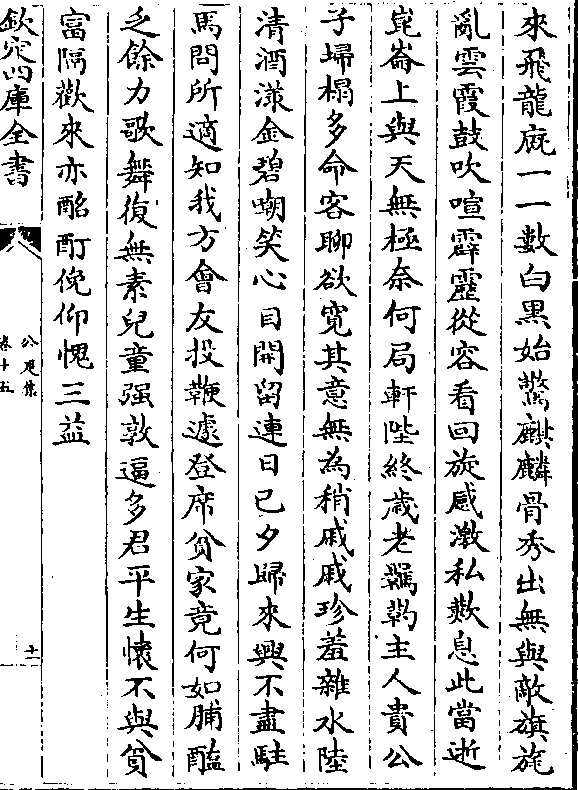 來飛龍廐一一數白黒始驚麒麟骨秀出無與敵旗旄
亂雲霞鼓吹喧霹靂從容看回旋感激私歎息此當逝
崑崙上與天無極奈何局軒陛終歳老羈靮主人貴公
子埽榻多命客聊欲寛其意無為稍戚戚珍羞雜水陸
清酒滟金碧嘲笑心目開留連日已夕歸來興不盡駐
馬問所適知我方會友投鞭遽登席貧家竟何如脯醢
乏餘力歌舞復無素兒童强敦逼多君平生懷不與貧
富隔歡來亦酩酊俛仰愧三益
欽定四庫全書
公是集
卷十五
十一